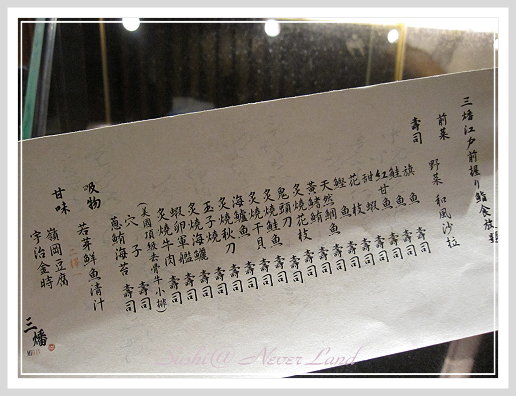 三燔江戶前握り鮨食放題
前菜 野菜和風沙拉
壽司 旗魚壽司
鮭魚壽司
紅甘魚壽司
甜蝦壽司
花枝壽司
鰹魚壽司
天然鯛魚壽司
黃鰭鮪魚壽司
炙燒花枝壽司
鬼頭刀壽司
炙燒鮭魚壽司
炙燒干貝壽司
海鱺魚壽司
炙燒秋刀壽司
玉子燒壽司
炙燒海鱺壽司
蝦卵軍艦壽司
炙燒牛肉壽司
(美國頂級去骨牛小排)
穴子壽司
蔥鮪海苔壽司
吸物 若芽鮮魚清汁
甘味 嶺岡豆腐
宇治金時
三燔
Sushi@ NeverLand